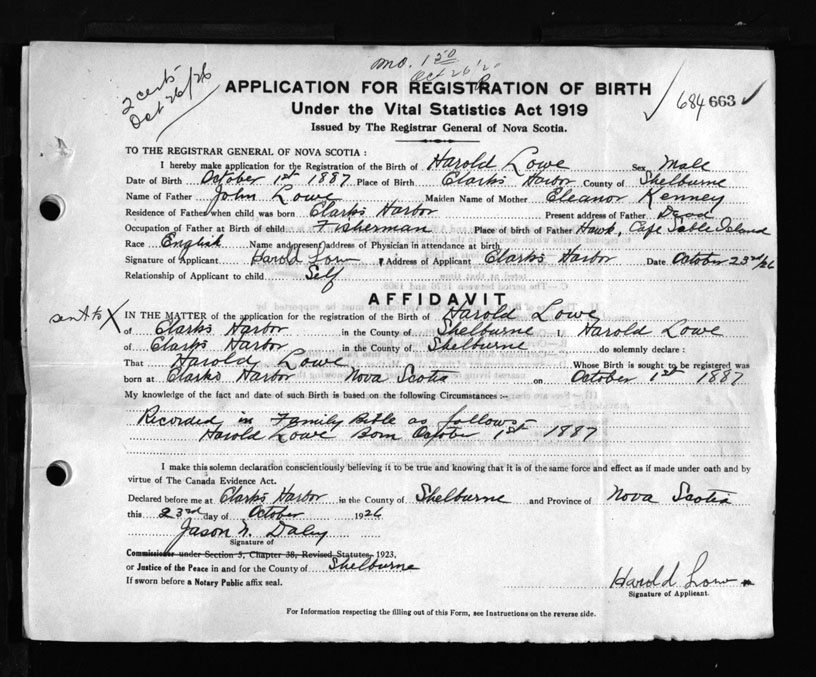 mo. 1 50
Oct 26'2
2 certs
Oct 26/26
APPLICATION FOR REGISTRATION OF BIRTH
Under the Vital Statistics Act 1919
Issued by The Registrar General of Nova Scotia.
684 663
TO THE REGISTRAR GENERAL OF NOVA SCOTIA :
I hereby make application for the Registration of the Birth of Harold Lowe Sex Male
Date of Birth October 1st 1887 Place of Birth Clarks Harbor County of Shelburne
Name of Father John Lowe Maiden Name of Mother Eleanor Kenney
Residence of Father when child was born Clarks Harbor Present address of Father Dead
Occupation of Father at Birth of child Fisherman Place of birth of Father Hawk, Cape Sable Island
Race English Name and present address of Physician in attendance at birth
Signature of Applicant Harold Low Address of Applicant Clarks Harbor Date October 23rd/26
Relationship of Applicant to child Self
AFFIDAVIT
sent to X IN THE MATTER of the application for the registration of the Birth of Harold Lowe
of Clarks Harbor in the County of Shelburne I, Harold Lowe
of Clarks Harbor in the County of Shelburne do solemnly declare :
That Harold Lowe Whose Birth is sought to be registered was
born at Clarks Harbor Nova Scotia on October 1st 1887
My knowledge of the fact and date of such Birth is based on the following Circumstances :-
Recorded in Family Bible as follows-
Harold Lowe Born October 1st 1887
I make this solemn declaration conscientiously believing it to be true and knowing that it is of the same force and effect as if made under oath and by
virtue of The Canada Evidence Act.
Declared before me at Clarks Harbor in the County of Shelburne and Province of Nova Scotia
this 23rd day of October 1926
Jason N. Daley
Signature of
Commissioner under Section 5, Chapter 38, Revised Statutes, 1923,
or Justice of the Peace in and for the County of Shelburne
If sworn before a Notary Public affix seal.
Harold Low
Signature of Applicant.
For Information respecting the filling out of this Form, see Instructions on the reverse side.